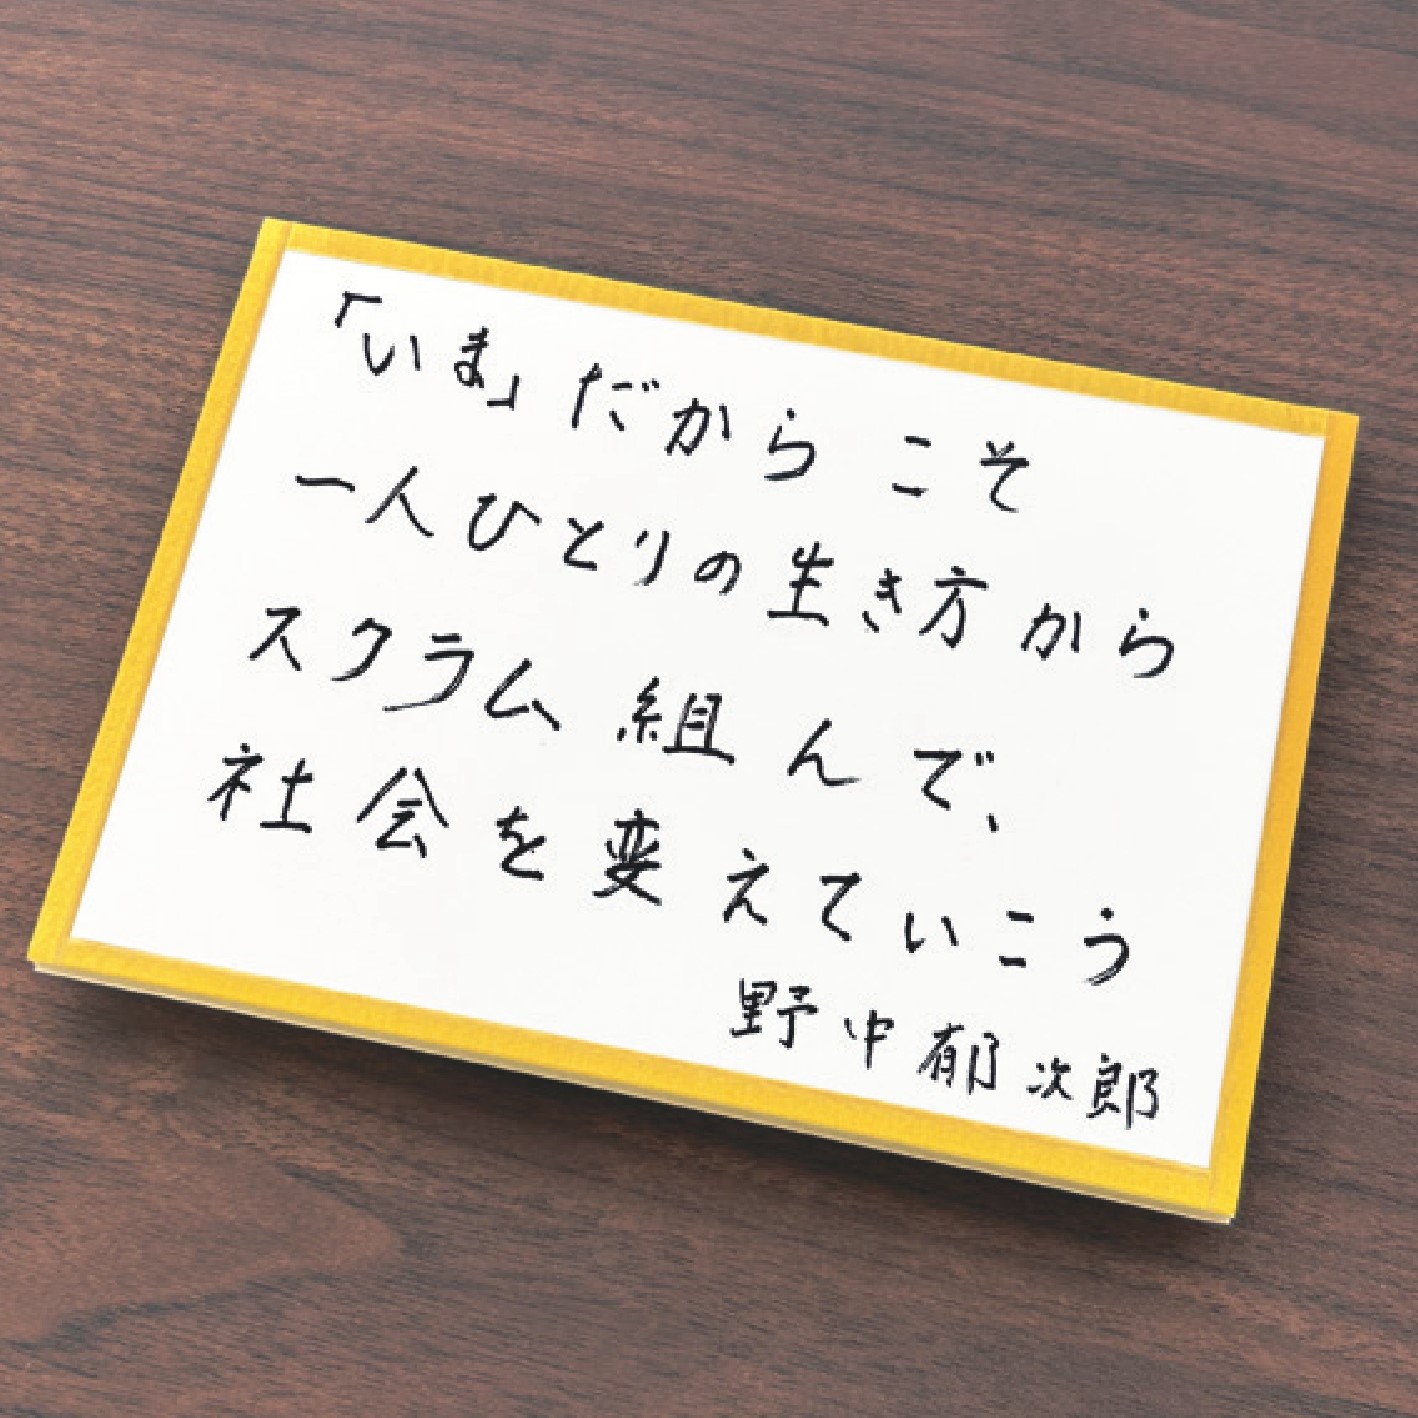 「いま」だからこそ
一人ひとりの生き方から
スクラム組んで、
社会を変えていこう
野中郁次郎